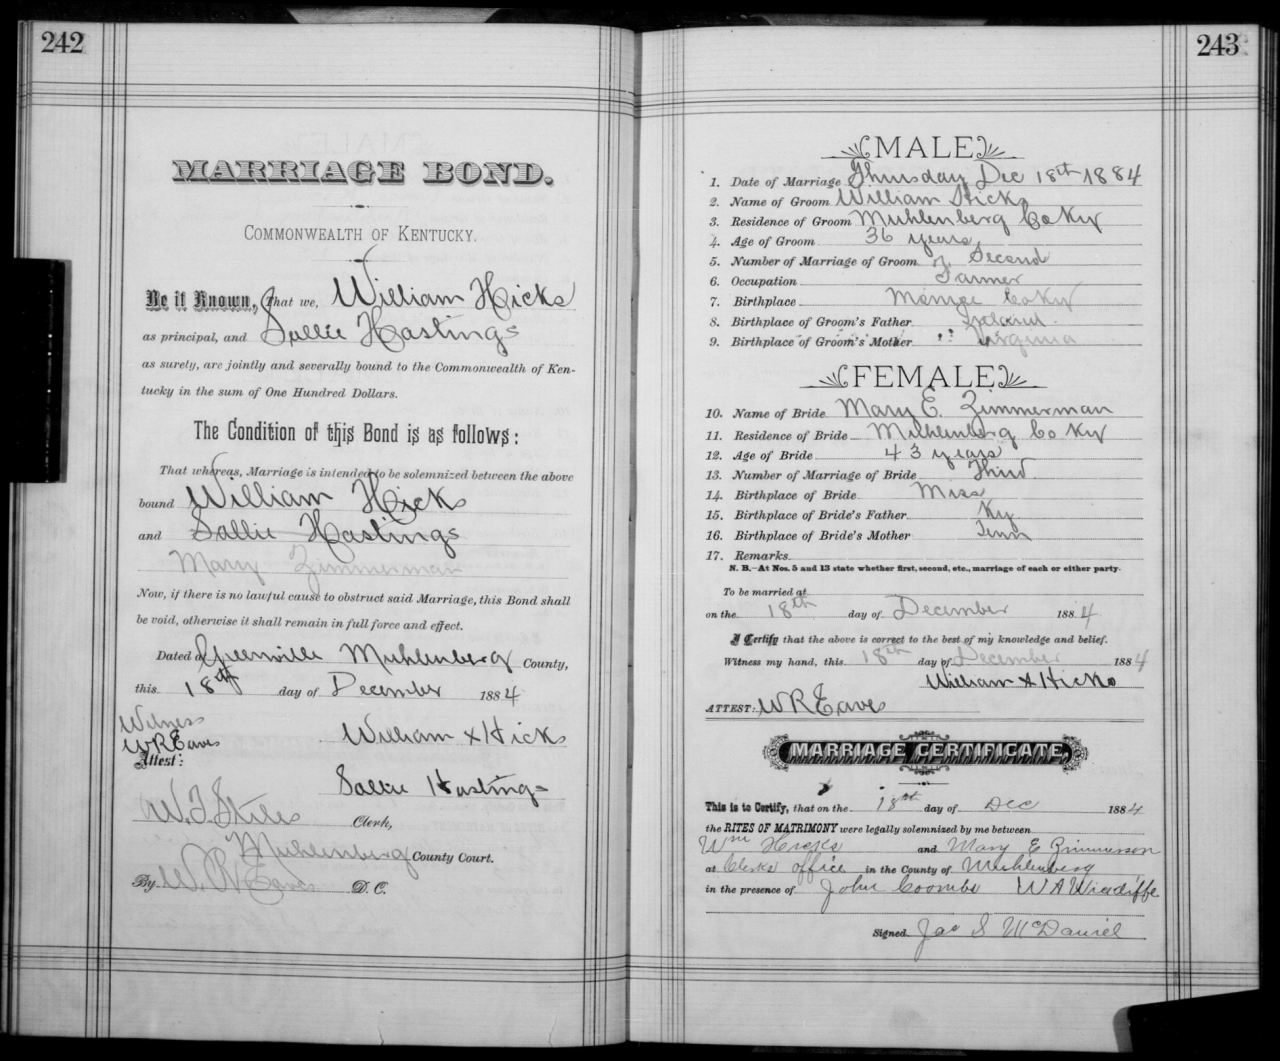 242
MARRIAGE BOND.
COMMONWEALTH OF KENTUCKY.
Be it Known, That we, William Hicks
as principal, and Sallie Hastings
as surety, are jointly and severally bound to the Commonwealth of Ken-
tucky in the sum of One Hundred Dollars.
The Condition of this Bond is as follows:
That whereas, Marriage is intended to be solemnized between the above
bound William Hicks
and Sallie Hastings
Mary Zimmerman
Now, if there is no lawful cause to obstruct said Marriage, this Bond shall
be void, otherwise it shall remain in full force and effect.
Dated at Greenville Muhlenberg County,
this 18th day of December 1884
Witness
WR Eaves William x Hicks
Attest:
Sallie Hastings
W. T. Stiles Clerk,
Muhlenberg County Court.
By W. R Eaves D. C.
243
MALE
1. Date of Marriage Thursday Dec 18th 1884
2. Name of Groom William Hicks
3. Residence of Groom Muhlenberg Co Ky
4. Age of Groom 36 years
5. Number of Marriage of Groom Second
6. Occupation Farmer
7. Birthplace Monroe Co Ky
8. Birthplace of Groom's Father Ireland
9. Birthplace of Groom's Mother Virginia
FEMALE
10. Name of Bride Mary E. Zimmerman
11. Residence of Bride Muhlenberg Co Ky
12. Age of Bride 43 years
13. Number of Marriage of Bride Third
14. Birthplace of Bride Miss
15. Birthplace of Bride's Father Ky
16. Birthplace of Bride's Mother Tenn
17. Remarks
N. B.—At Nos. 5 and 13 state whether first, second, etc., marriage of each or either party.
To be married at
on the 18th day of December 1884
I Certify that the above is correct to the best of my knowledge and belief.
Witness my hand, this 18th day of December 1884
William x Hicks
ATTEST: WR Eaves
MARRIAGE CERTIFICATE.
This is to Certify, that on the 18th day of Dec 1884
the RITES OF MATRIMONY were legally solemnized by me between
Wm Hicks and Mary E Zimmerson
at Clerks office in the County of Muhlenberg
in the presence of John Coombs W A Wicliffe
Signed Jas S McDaniel